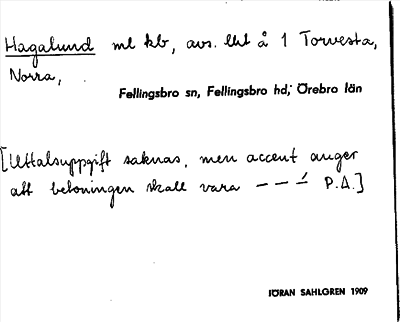 Hagalund ml kb, avs. lht å 1 Torvesta,
Norra,
Fellingsbro sn, Fellingsbro hd, Örebro län
[Uttalsuppgift saknas, men accent anger
att betoningen skall vara – – –́ P.A.]
JÖRAN SAHLGREN 1909